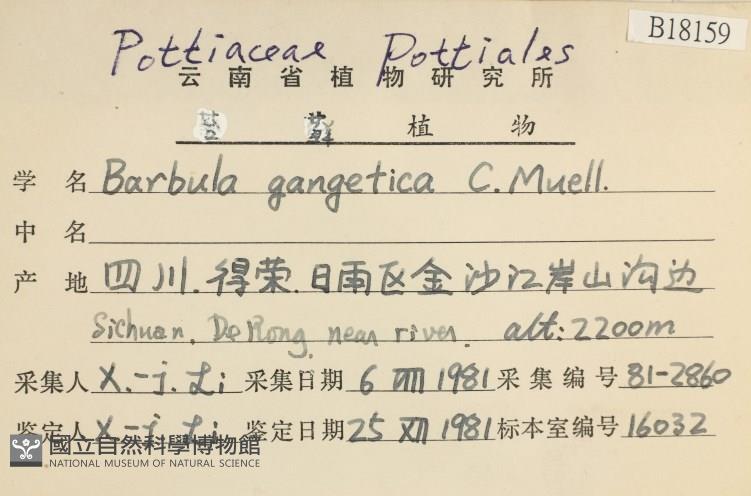 B18159
Pottiaceae Pottiales
云南省植物研究所
苔藓植物
学名 Barbula gangetica C. Muell.
中名
产地 四川.得荣.日雨区金沙江岸山沟边
Sichuan. DeRong. near river. alt: 2200m
采集人 X.-j. Li 采集日期 6 VIII 1981 采集编号 81-2860
鉴定人 X-j Li 鉴定日期 25 XII 1981 标本室编号 16032
國立自然科學博物館
NATIONAL MUSEUM OF NATURAL SCIENCE